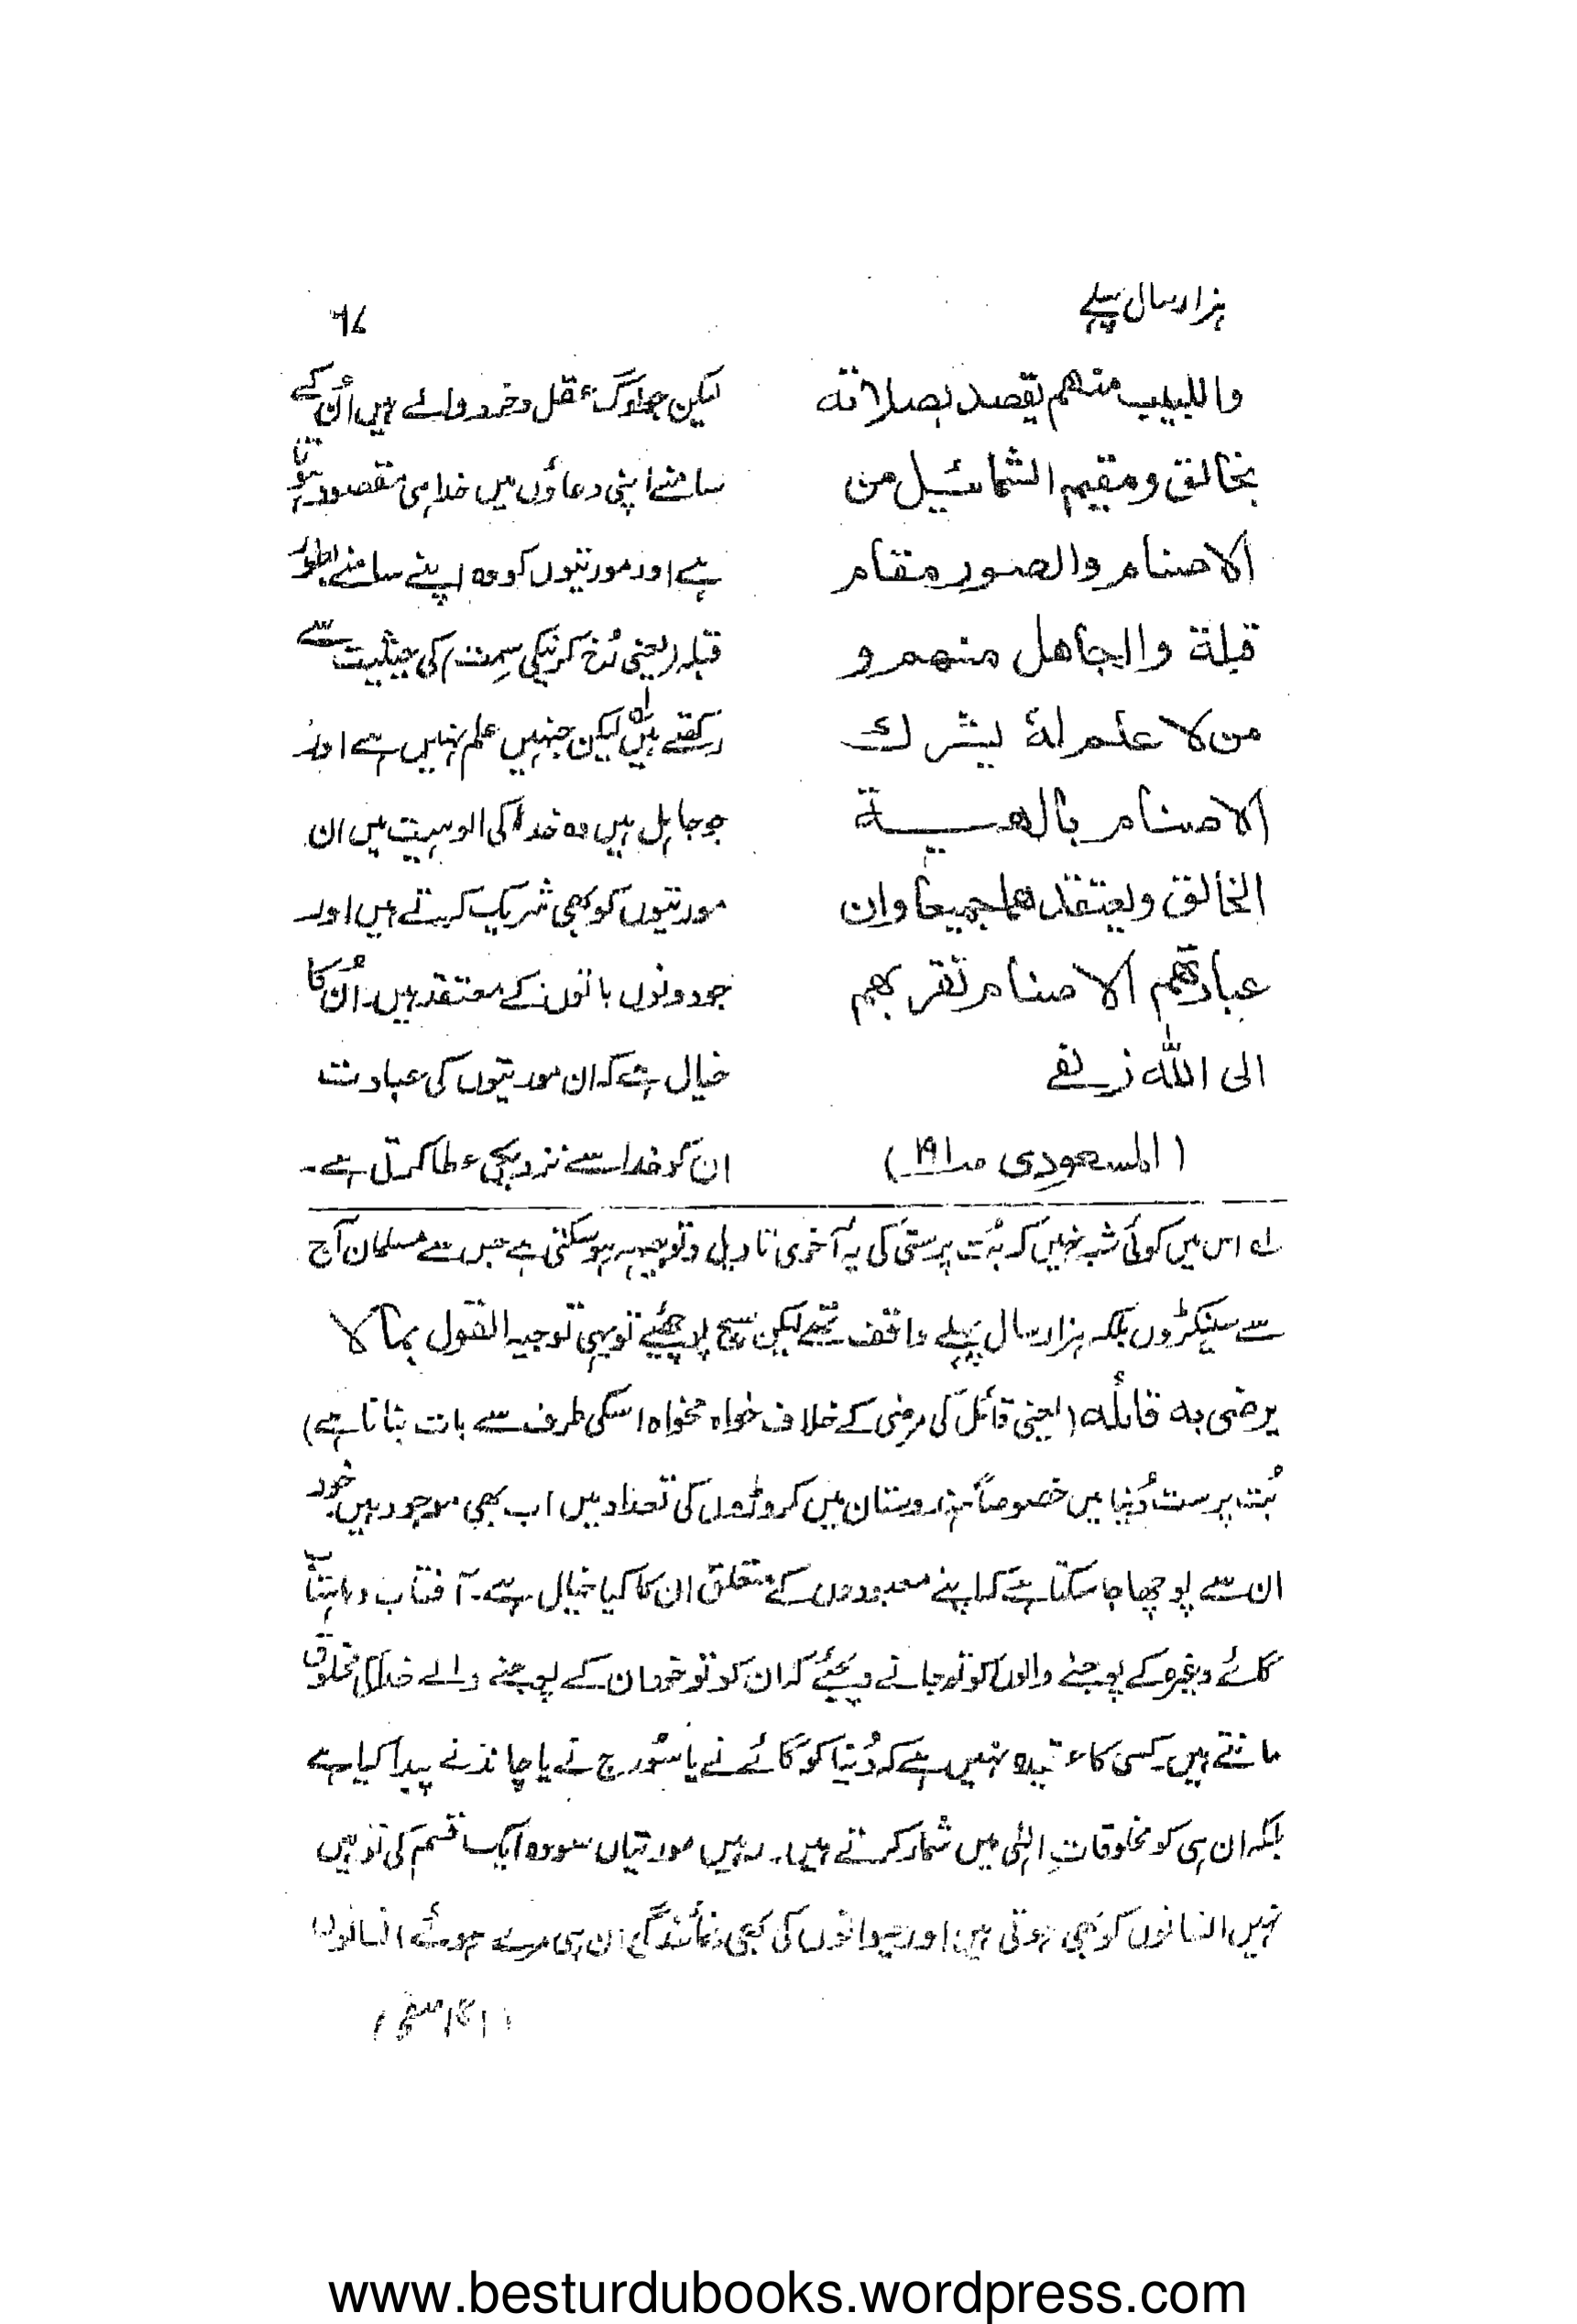 ہزار سال پہلے
۶۷
واللبيب منهم يقصد بصلاته
بخالق ومقيم التماثيل من
الاصنام والصور مقام
قبلة والجاهل منهم و
من لا علم له يشرك
الاصنام بالهية
الخالق ويعتقدهما جميعا وان
عبادتهم الاصنام تقربهم
الى الله زلفے
(المسعودی صـ۱۹۱)
لیکن جو لوگ عقل و خرد والے ہیں اُن کے
سامنے اپنی دعاؤں میں خدا ہی مقصود ہوتا
ہے اور مورتیوں کو وہ اپنے سامنے بطور
قبلہ (یعنی رُخ کرنیکی سمت) کی حیثیت سے
رکھتے ہیں لہ لیکن جنہیں علم نہیں ہے اور
جو جاہل ہیں وہ خدا کی الوہیت میں ان
مورتیوں کو بھی شریک کرتے ہیں اور
جو دونوں باتوں کے معتقد ہیں۔ اُن کا
خیال ہے کہ ان مورتیوں کی عبادت
ان کو خدا سے نزدیکی عطا کرتی ہے۔
لہ اس میں کوئی شبہ نہیں کہ بُت پرستی کی یہ آخری تاویل و توجیہہ ہو سکتی ہے جس سے مسلمان آج
سے سینکڑوں بلکہ ہزار سال پہلے واقف تھے لیکن سچ پوچھئیے تو یہی توجیہ القول بما لا
يرضى به قائله (یعنی قائل کی مرضی کے خلاف خواہ مخواہ اسکی طرف سے بات بنانا ہے)
بُت پرست دُنیا میں خصوصاً ہندوستان میں کروڑوں کی تعداد میں اب بھی موجود ہیں خود
ان سے پوچھا جا سکتا ہے کہ اپنے معبودوں کے متعلق ان کا کیا خیال ہے۔ آفتاب و ماہتاب
گائے وغیرہ کے پوجنے والوں کو تو جانے دیجئے کہ ان کو تو خود ان کے پوجنے والے خدا کی مخلوق
مانتے ہیں۔ کسی کا عقیدہ نہیں ہے کہ دُنیا کو گائے نے یا سُورج نے یا چاند نے پیدا کیا ہے
بلکہ ان ہی کو مخلوقاتِ الٰہی میں شمار کرتے ہیں۔ رہیں مورتیاں سو وہ ایک قسم کی تو ہیں
نہیں انسانوں کو بھی ہوتی ہیں اور حیوانوں کی بھی نمائندگی ان ہی مرے ہوئے انسانوں
www.besturdubooks.wordpress.com